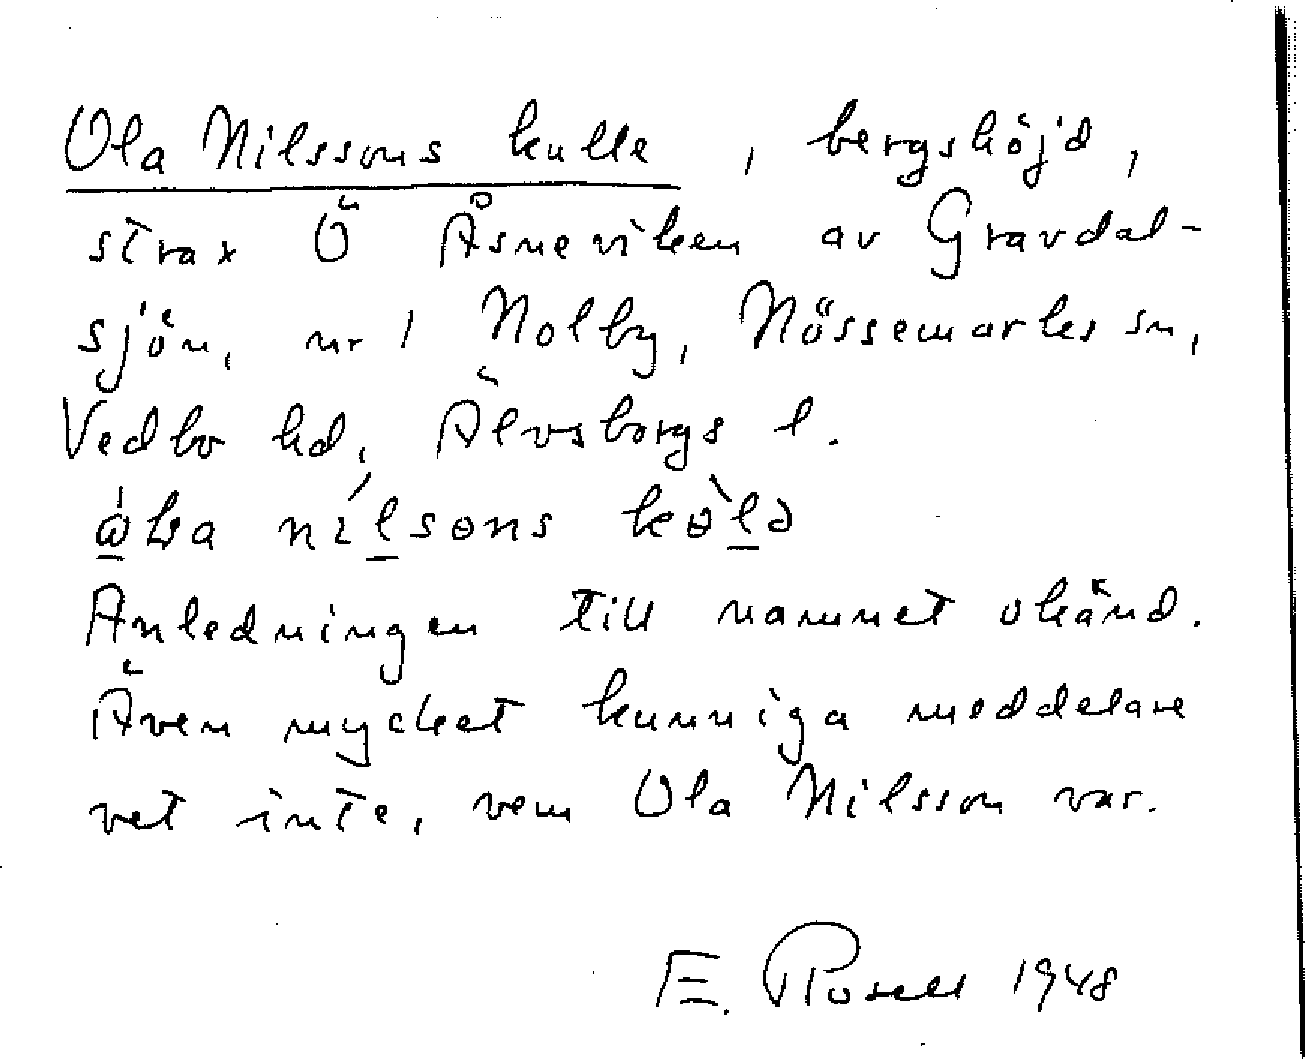 Ola Nilssons kulle, bergshöjd,
strax Ö Åsneviken av Gravdal-
sjön, nr 1 Nolby, Nössemarks sn,
Vedbo hd, Älvsborgs l.
nílsɵns kɵ̀lə
Anledningen till namnet okänd.
Även mycket kunniga meddelare
vet inte, vem Ola Nilsson var.
E. Rosell 1948